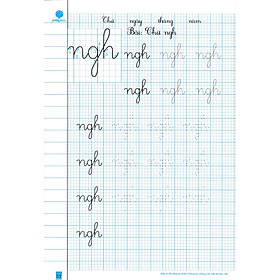 Thứ ngày tháng năm
Bài: Chữ ngh
ngh ngh ngh ngh
ngh ngh ngh
ngh ngh ngh ngh
ngh ngh ngh ngh
ngh ngh ngh ngh
ngh